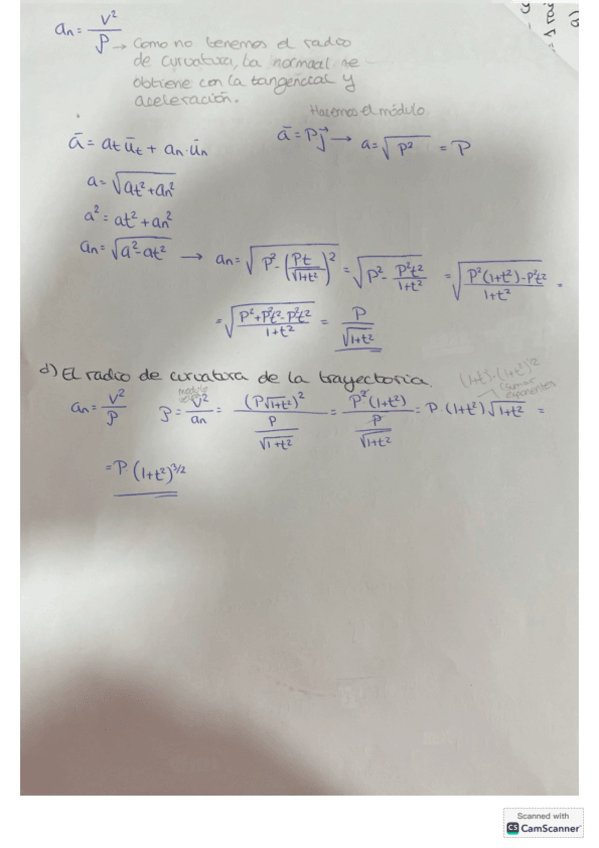 an = v²/ρ → Como no tenemos el radio
de curvatura, la normal se
obtiene con la tangencial y
aceleración.
Hacemos el módulo
ā = at ūt + an·ūn
ā = Pj → a = √P² = P
a = √(at²+an²)
a² = at²+an²
an = √(a²-at²) → an = √(P² - (Pt/√(1+t²))²) = √(P² - P²t²/(1+t²)) = √((P²(1+t²)-P²t²)/(1+t²)) =
= √((P²+P²t²-P²t²)/(1+t²)) = P/√(1+t²)
d) El radio de curvatura de la trayectoria.
an = v²/ρ ρ = v²/an = (P√(1+t²))²/(P/√(1+t²)) = P²(1+t²)/(P/√(1+t²)) = P·(1+t²)√(1+t²) =
= P·(1+t²)^3/2
Scanned with
CS CamScanner